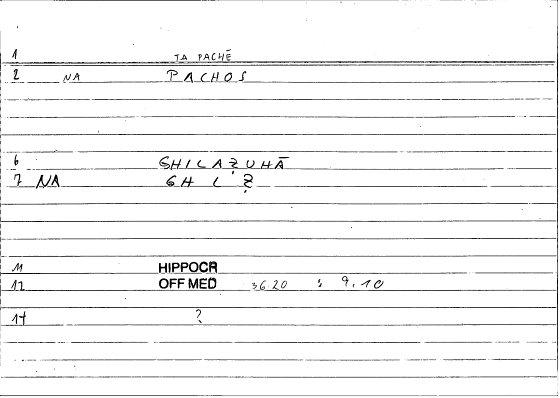 1 TA PACHĒ
2 NA PACHOS
6 GHILAẒUHĀ
7 NA GH L Ẓ
11 HIPPOCR
12 OFF MED 36.20 : 9.10
14 ?